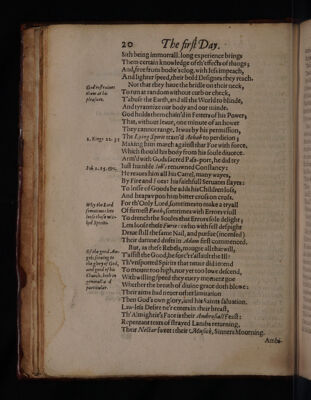 20 The first Day.
Sith being immortall: long experience brings
Them certain knowledge of th'effects of things;
And, free from bodie's clog, with less impeach,
And lighter speed, their bold Designes they reach.
Not that they haue the bridle on their neck,
God restraineth
them at his
pleasure.
To run at random without curb or check,
T'abuse the Earth, and all the World to blinde,
And tyrannize our body and our minde.
God holds them chain'd in Fetters of his Power;
That, without leaue, one minute of an hower
They cannot range. It was by his permission,
1. Kings 22. 32
The Lying Spirit train'd Achab to perdition;
Making him march against that Foe with force,
Which should his body from his soule diuorce.
Arm'd with Gods sacred Pass-port, he did try
Iust humble Iob's renowned Constancy:
He reaues him all his Cattel, many wayes,
By Fire and Foes: his faithfull Seruants slayes:
To losse of Goods he adds his Childrens loss,
And heapes vpon him bitter cross on cross.
Why the Lord
sometimes lets
loose these wic-
ked Spirits.
For th'Only Lord, sometimes to make a tryall
Of firmest Faith, sometimes with Errors viall
To drench the Soules that Errors sole delight;
Lets loose these Furies: who with fell despight
Driue still the same Nail, and pursue (incensed)
Their damned drifts in Adam first commenced.
Of the good An-
gels, seruing to
the glory of God,
and good of his
Church, both in
generall &
particular.
But, as these Rebels, maugre all their will,
T'assist the Good, be forc't t'assault the Ill:
Th'vnspotted Spirits that neuer did intend
To mount too high, nor yet too lowe descend,
With willing speed they euery moment goe
Whether the breath of diuine grace doth blowe:
Their aims had neuer other limitation
Then God's own glory, and his Saints saluation.
Law-less Desire ne'r enters in their breast,
Th'Almightie's Face is their Ambrosial Feast:
Repentant tears of strayed Lambs returning,
Their Nectar sweet: their Musick, Sinners Mourning.
Ambi-